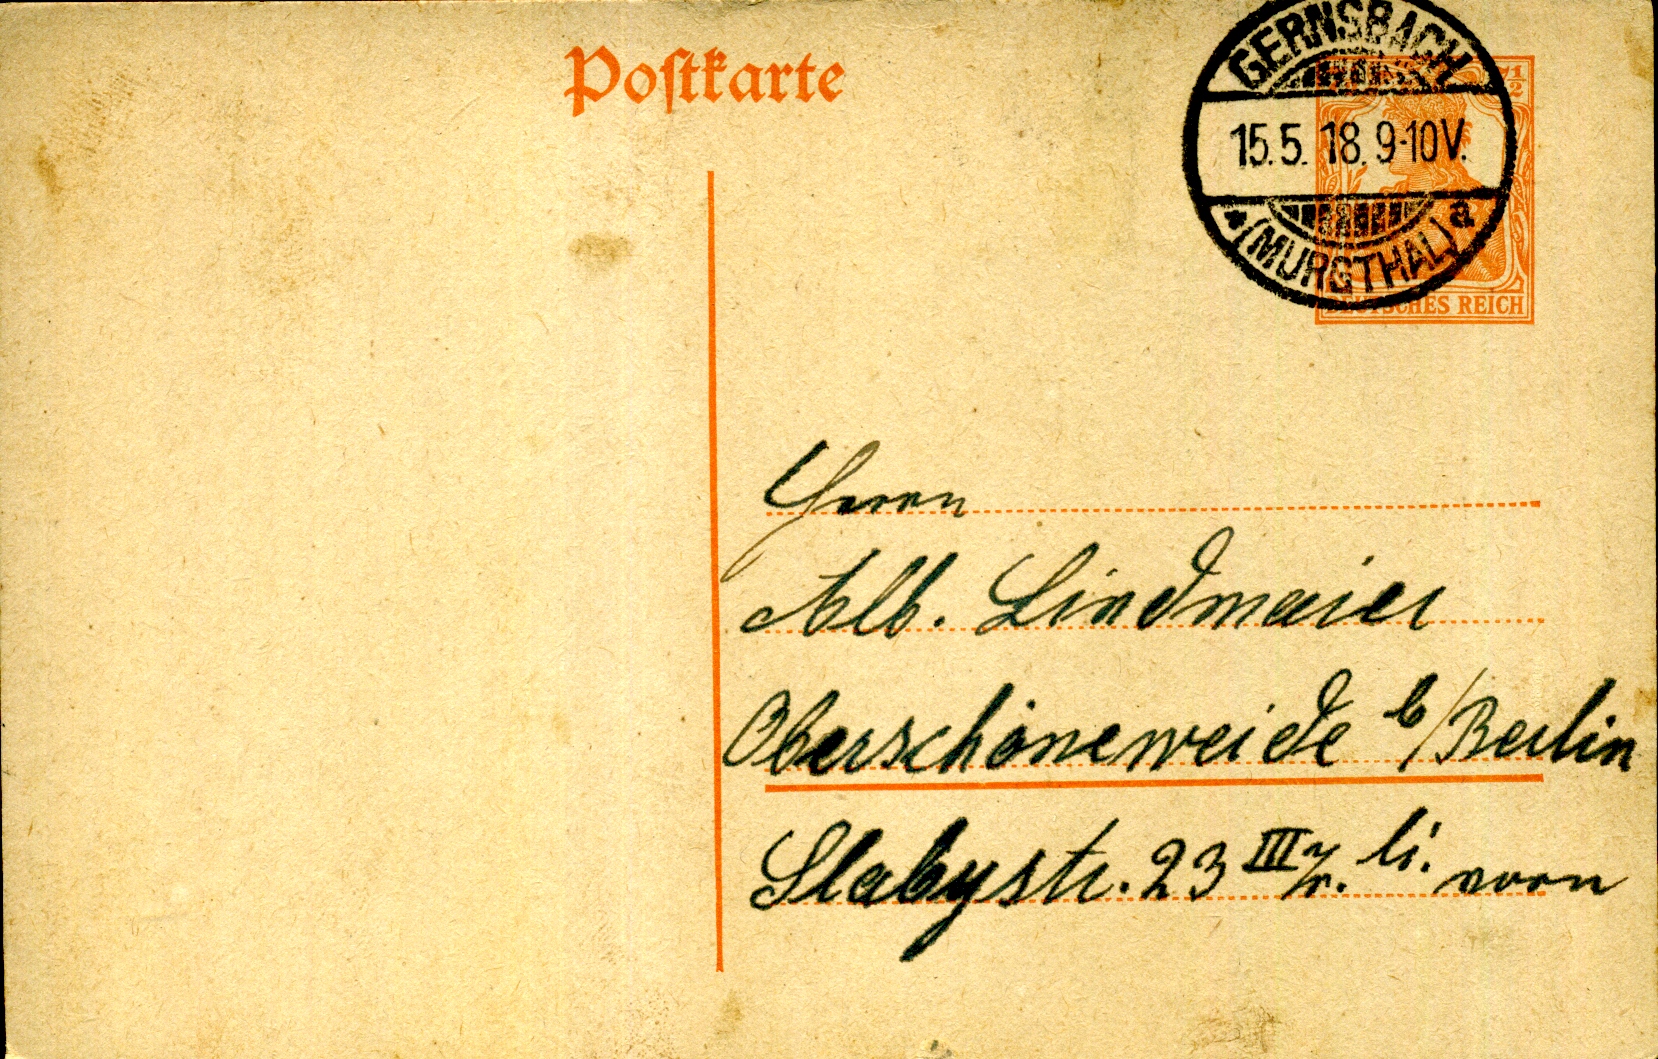 Postkarte
GERNSBACH
15.5.18.9-10V.
* (MURGTHAL) a
7½
DEUTSCHES REICH
Herrn
Alb. Lindmaier
Oberschöneweide b/Berlin
Slabystr. 23 III li. vorn